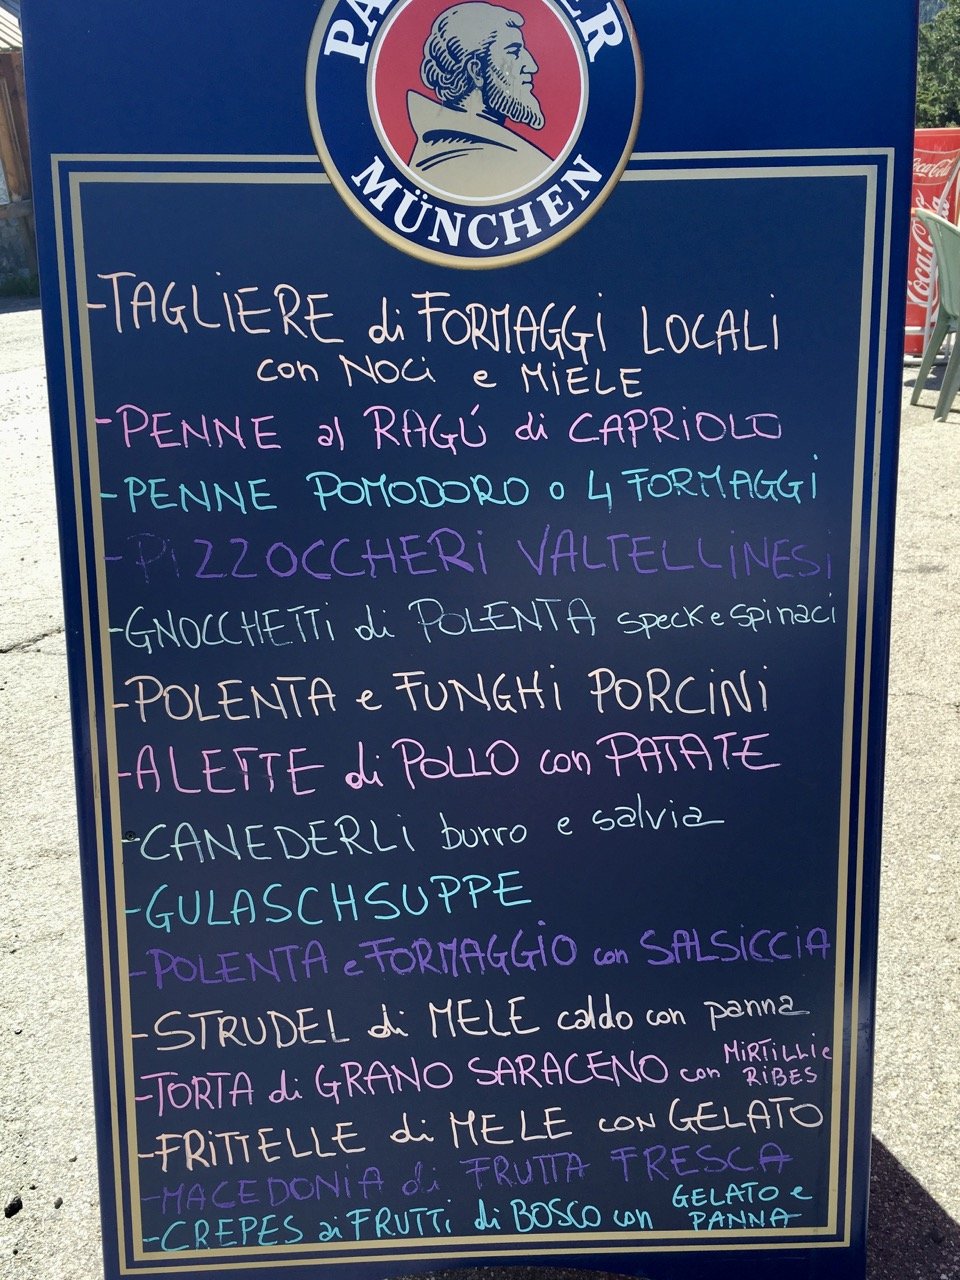 PAULANER
MÜNCHEN
-TAGLIERE di FORMAGGI LOCALI
con NOCI e MIELE
-PENNE al RAGÚ di CAPRIOLO
-PENNE POMODORO o 4 FORMAGGI
-PIZZOCCHERI VALTELLINESI
-GNOCCHETTI di POLENTA speck e spinaci
-POLENTA e FUNGHI PORCINI
-ALETTE di POLLO con PATATE
-CANEDERLI burro e salvia
-GULASCHSUPPE
-POLENTA e FORMAGGIO con SALSICCIA
-STRUDEL di MELE caldo con panna
-TORTA di GRANO SARACENO con MIRTILLI e
RIBES
-FRITTELLE di MELE CON GELATO
-MACEDONIA di FRUTTA FRESCA
-CREPES ai FRUTTI di BOSCO con GELATO e
PANNA
Coca-Cola
Coca-Cola